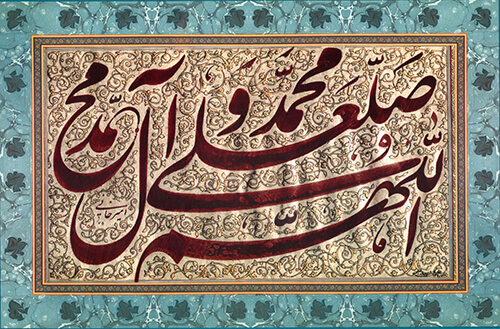 اللّهمّ صَلّ علی محمّد وَ آل محمّد